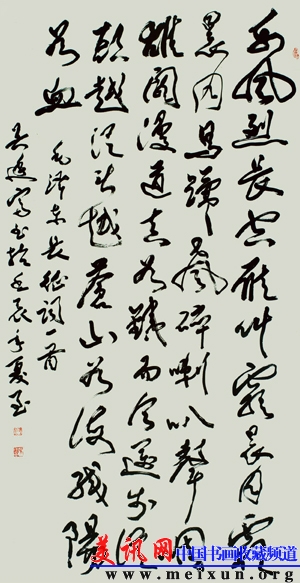 西风烈长空雁叫霜晨月霜
晨月马蹄声碎喇叭声咽
雄关漫道真如铁而今迈步从
头越从头越苍山如海残阳
如血
毛泽东长征词一首
书於壬辰年夏
美讯网 中国书画收藏频道
www.meixun.org